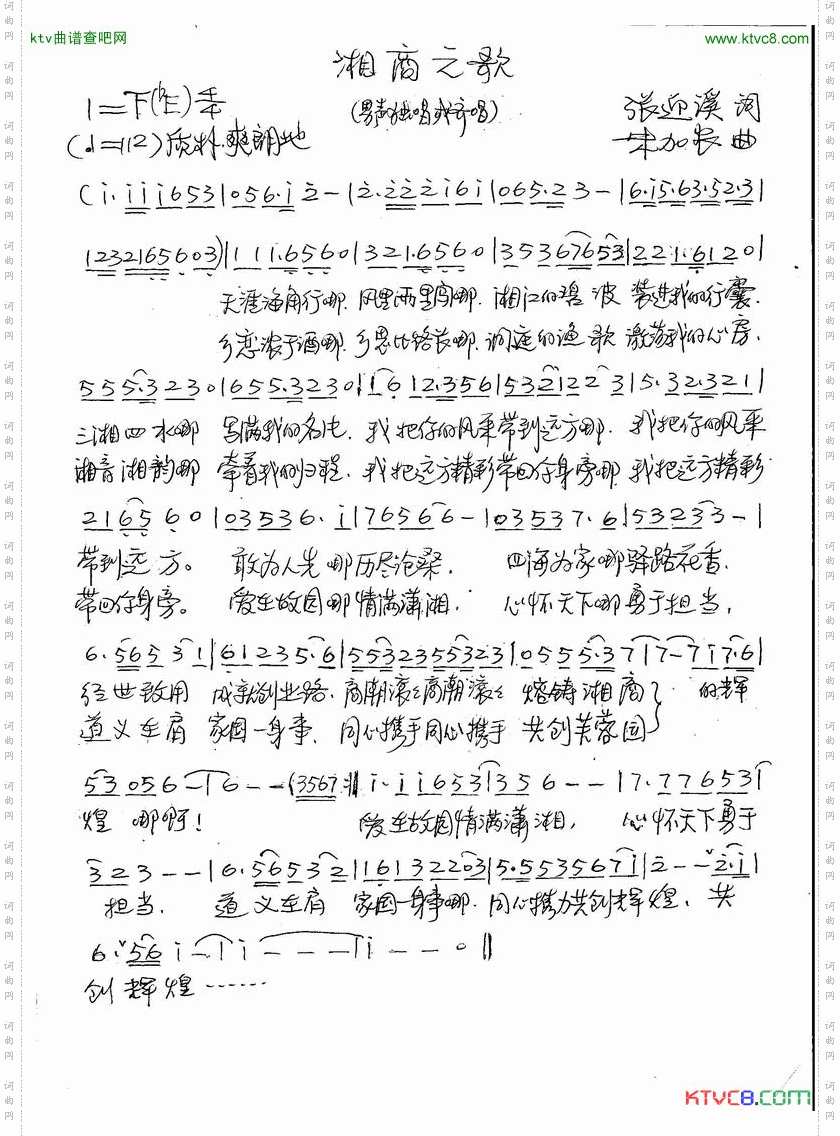 ktv曲谱查吧网
www.ktvc8.com
湘商之歌
(男声独唱或齐唱)
张迎溪 词
朱加农 曲
(♩=112) 质朴.爽朗地
(i. i i i 6 5 3 | 0 5 6. i 2 - | 2. 2 2 2 i 6 i | 0 6 5. 2 3 - | 6. i 5. 6 3. 5 2. 3 |
1 2 3 2 1 6 5 6 0 3) | 1 1 1. 6 5 6 0 | 3 2 1. 6 5 6 0 | 3 5 3 6 7 6 5 3 | 2 2 1. 6 1 2 0 |
天涯海角行哪.风里雨里闯哪.湘江的碧波 装进我的行囊.
乡恋浓于酒哪.乡思比路长哪.洞庭的渔歌 激荡我的心房.
5 5 5. 3 2 3 0 | 6 5 5. 3 2 3 0 | 1 6 1 2. 3 5 6 | 5 3 2 1 2 2 3 | 5. 3 2. 3 2 1 |
三湘四水哪 写满我的名片.我把你的风采带到远方哪.我把你的风采
湘音湘韵哪 牵着我的归程.我把远方精彩带回你身旁哪 我把远方精彩
2 1 6 5 6 0 | 0 3 5 3 6. i | 7 6 5 6 6 - | 0 3 5 3 7. 6 | 5 3 2 3 3 - |
带到远方。 敢为人先哪历尽沧桑. 四海为家哪驿路花香.
带回你身旁。 爱在故园哪情满潇湘. 心怀天下哪勇于担当,
6. 5 6 5 3 1 | 6 1 2 3 5. 6 | 5 5 3 2 3 5 5 3 2 3 | 0 5 5 5. 3 7 | 7 - 7 i 7. 6 |
经世致用 成就创业路.商潮滚滚商潮滚滚 熔铸湘商 的辉
道义在肩 家国一身事.同心携手同心携手 共创芙蓉园
5 3 0 5 6 - | 6 - - (3 5 6 7 :‖ i. i i 6 5 3 | 3 5 6 - - | 7. 7 7 6 5 3 |
煌 哪啊! 爱在故园情满潇湘, 心怀天下勇于
3 2 3 - - | 6. 5 6 5 3 2 | 1 6 1 3 2 2 0 3 | 5. 5 5 3 5 6 7 i | 2 - - 2. i |
担当. 道义在肩 家国一身事哪.同心携力共创辉煌、共
6. 5 6 i - | i - - - | i - - 0 ‖
创辉煌……
KTVC8.COM
词曲网